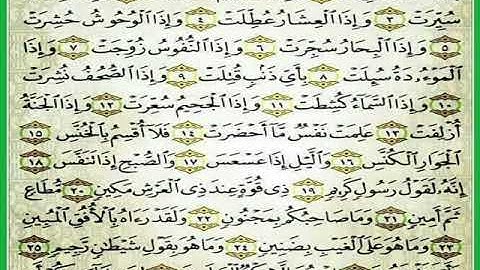 سُيِّرَتْ ٣ وَإِذَا الْعِشَارُ عُطِّلَتْ ٤ وَإِذَا الْوُحُوشُ حُشِرَتْ
٥ وَإِذَا الْبِحَارُ سُجِّرَتْ ٦ وَإِذَا النُّفُوسُ زُوِّجَتْ ٧ وَإِذَا
الْمَوْءُۥدَةُ سُئِلَتْ ٨ بِأَيِّ ذَنْبٍ قُتِلَتْ ٩ وَإِذَا الصُّحُفُ نُشِرَتْ
١٠ وَإِذَا السَّمَآءُ كُشِطَتْ ١١ وَإِذَا الْجَحِيمُ سُعِّرَتْ ١٢ وَإِذَا الْجَنَّةُ
أُزْلِفَتْ ١٣ عَلِمَتْ نَفْسٌ مَّا أَحْضَرَتْ ١٤ فَلَآ أُقْسِمُ بِالْخُنَّسِ ١٥
الْجَوَارِ الْكُنَّسِ ١٦ وَالَّيْلِ إِذَا عَسْعَسَ ١٧ وَالصُّبْحِ إِذَا تَنَفَّسَ ١٨
إِنَّهُۥ لَقَوْلُ رَسُولٍ كَرِيمٍ ١٩ ذِي قُوَّةٍ عِندَ ذِي الْعَرْشِ مَكِينٍ ٢٠ مُّطَاعٍ
ثَمَّ أَمِينٍ ٢١ وَمَا صَاحِبُكُم بِمَجْنُونٍ ٢٢ وَلَقَدْ رَءَاهُ بِالْأُفُقِ الْمُبِينِ
٢٣ وَمَا هُوَ عَلَى الْغَيْبِ بِضَنِينٍ ٢٤ وَمَا هُوَ بِقَوْلِ شَيْطَٰنٍ رَّجِيمٍ ٢٥